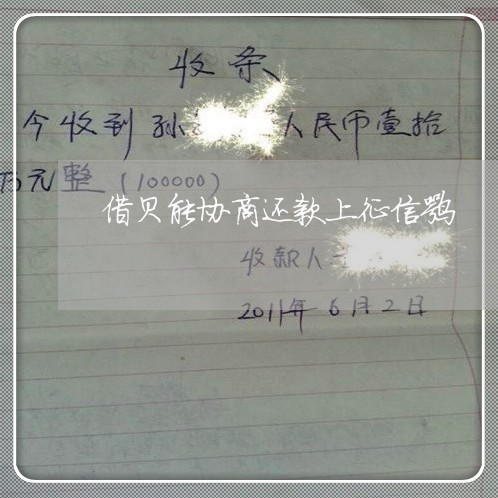 收条
今收到孙 人民币壹拾
万元整（100000）
借贝能协商还款上征信鹗
收款人
2011年6月2日